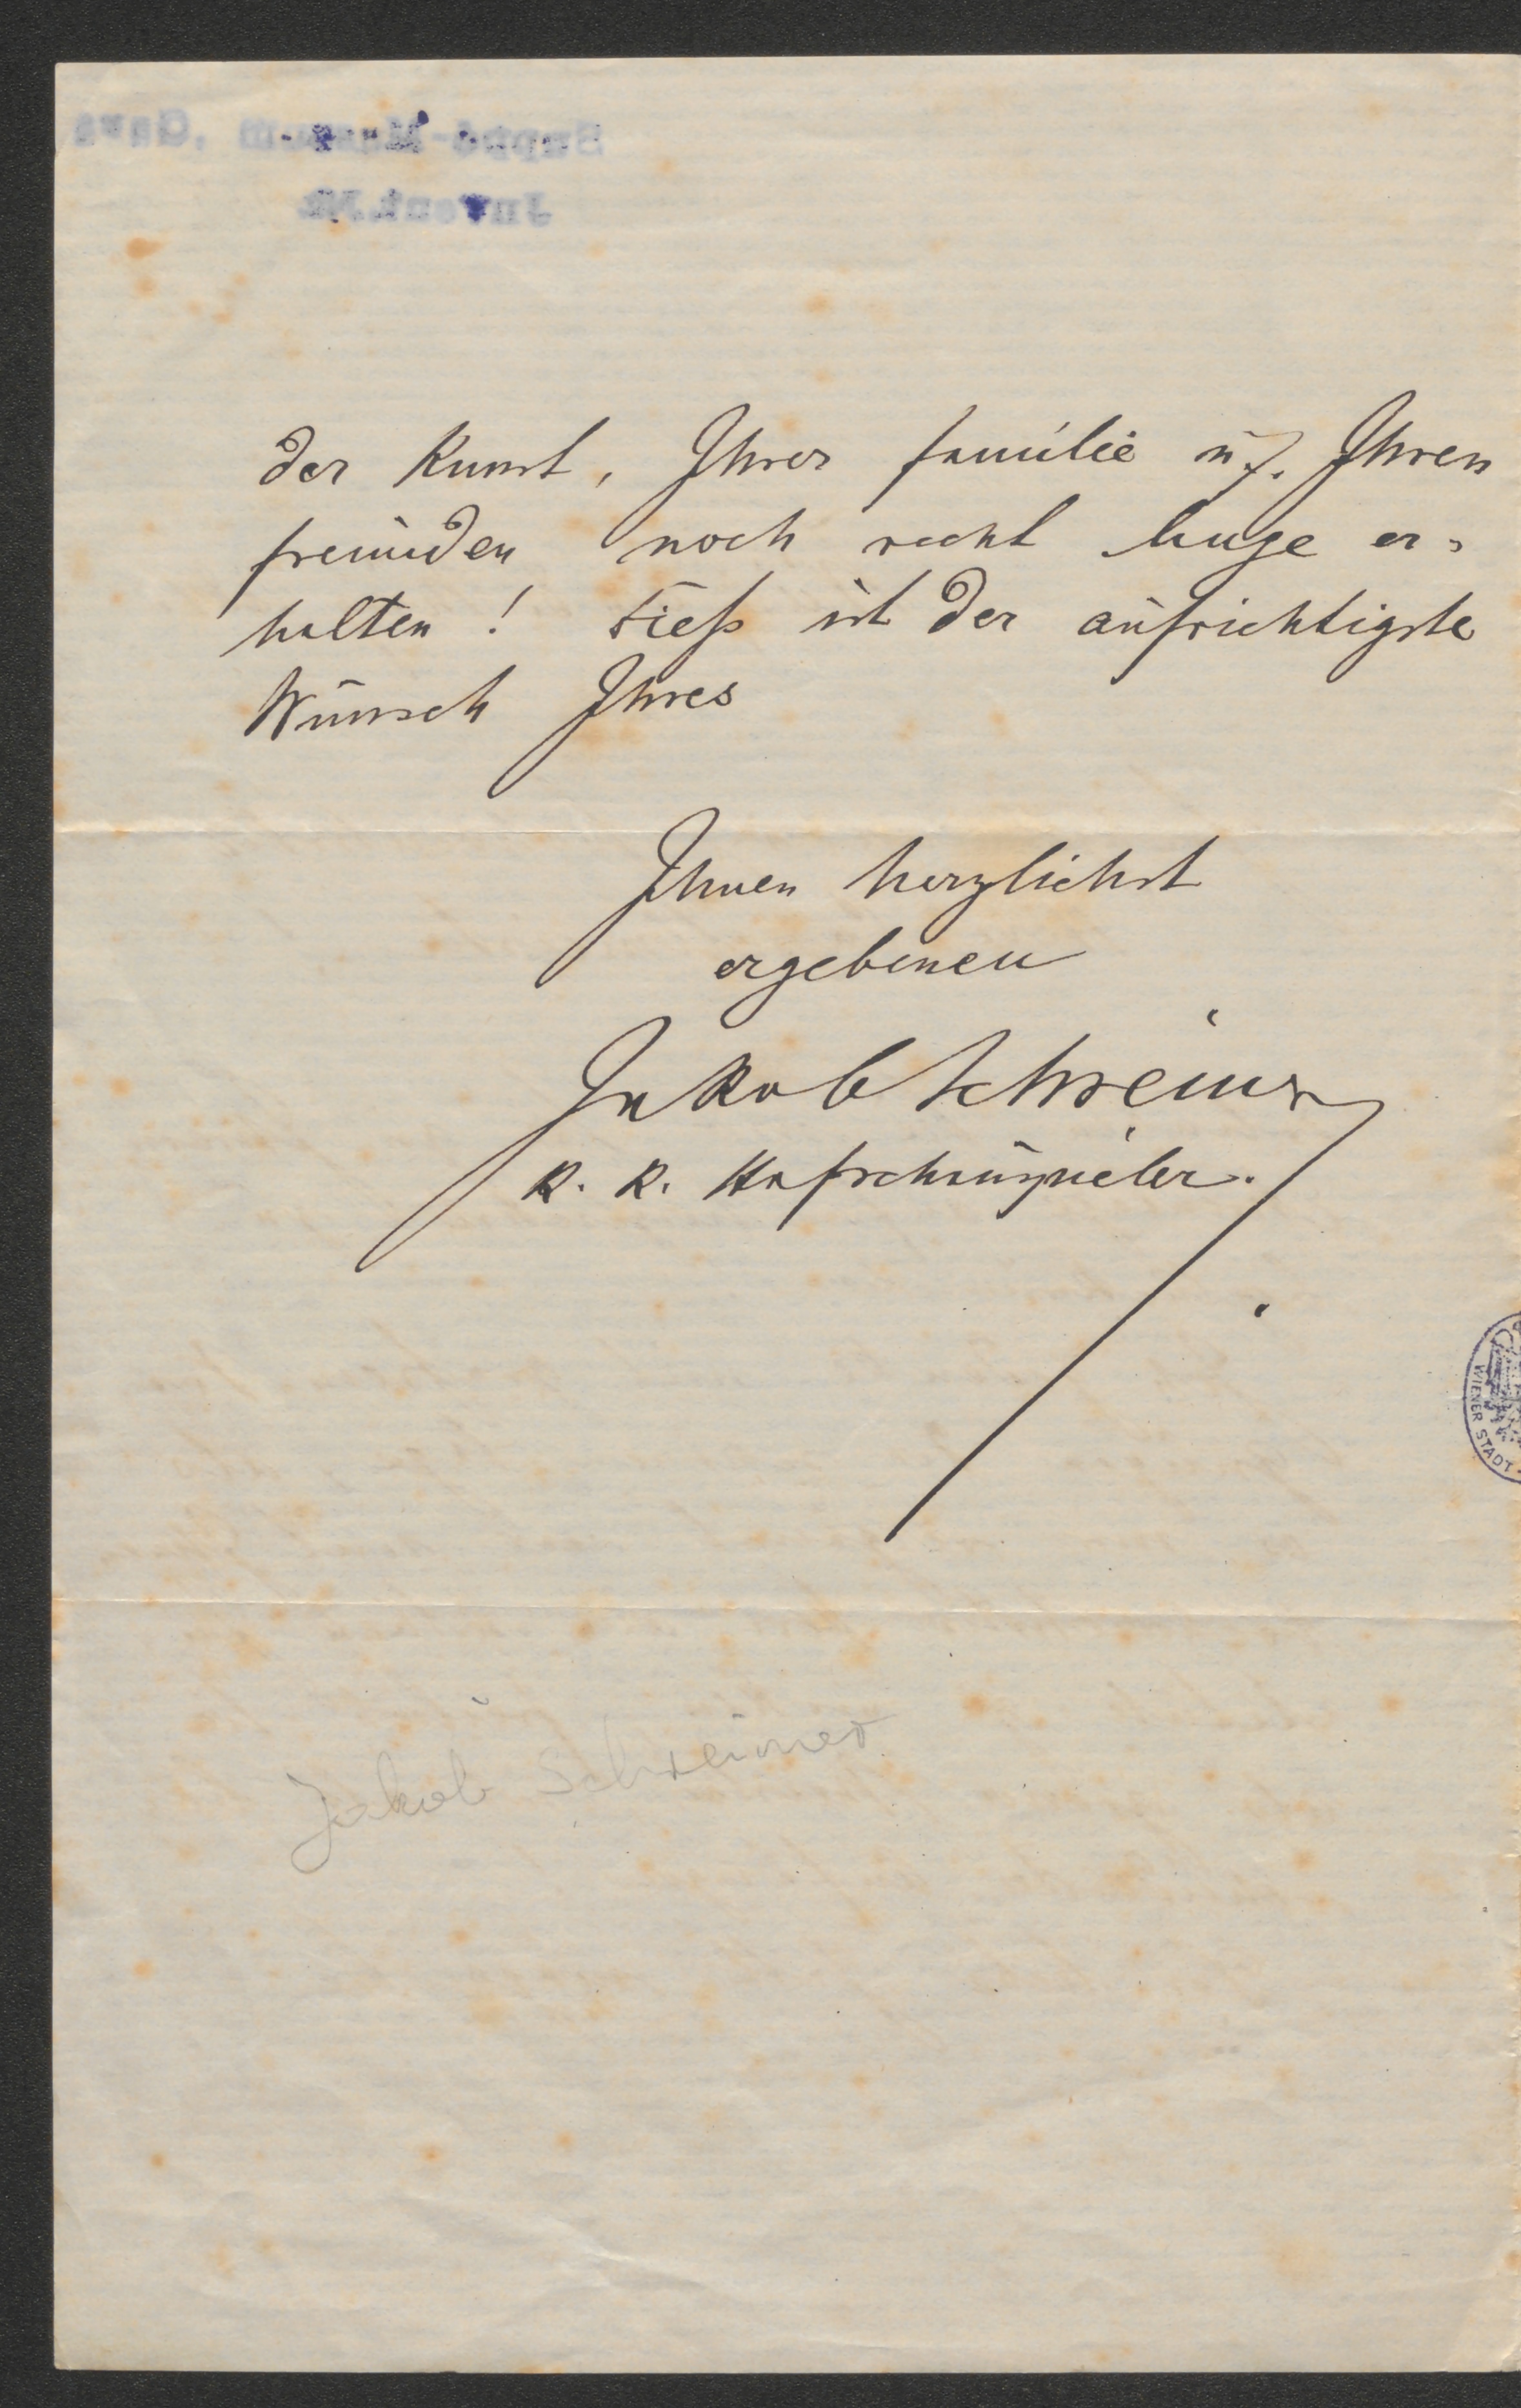 Suppé-Museum, Gars
Invent.Nr.
der Kunst, Ihrer Familie u. Ihren
Freunden noch recht lange er=
halten! Dieß ist der aufrichtigste
Wunsch Ihres
Ihnen herzlichst
ergebenen
Jakob Schreiner
K. K. Hofschauspieler.
WIENER STADT-
Jakob Schreiner